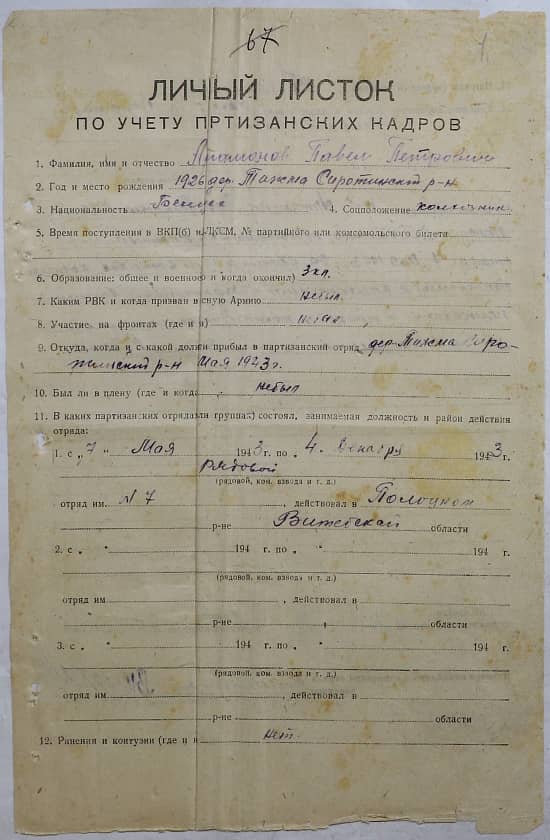 67
1
ЛИЧЫЙ ЛИСТОК
ПО УЧЕТУ ПРТИЗАНСКИХ КАДРОВ
1. Фамилия, имя и отчество Павел Петрович
2. Год и место рождения 1926 дер. Тахма Сиротинский р-н
3. Национальность 4. Соцположение колхозник
5. Время поступления в ВКП(б) и ЛКСМ, № партийного или комсомольского билета
6. Образование: общее и военное и когда окончил) 3 кл.
7. Каким РВК и когда призван в сную Армию небыл
8. Участие на фронтах (где и
9. Откуда, когда и с какой должн прибыл в партизанский отряд дер. Тахма Сиро-
тинский р-н Мая 1943 г.
10. Был ли в плену (где и когда небыл
11. В каких партизанских отрядах ли группах) состоял, занимаемая должность и район действия
отряда:
1. с „ 7 " Мая 1943 г. по „ 4. Декабря 1943 г.
Рядовой
(рядовой, ком. взвода и т. д.)
отряд им. N 7 , действовал в Полоцком
р-не Витебской области
2. с „ " 194 г. по „ " 194 г.
(рядовой, ком. взвода и т. д.)
отряд им. , действовал в
р-не области
3. с „ " 194 г. по „ " 194 г.
(рядовой, ком. взвода и т. д.)
отряд им , действовал в
р-не области
12. Ранения и контузии (где и к нет.